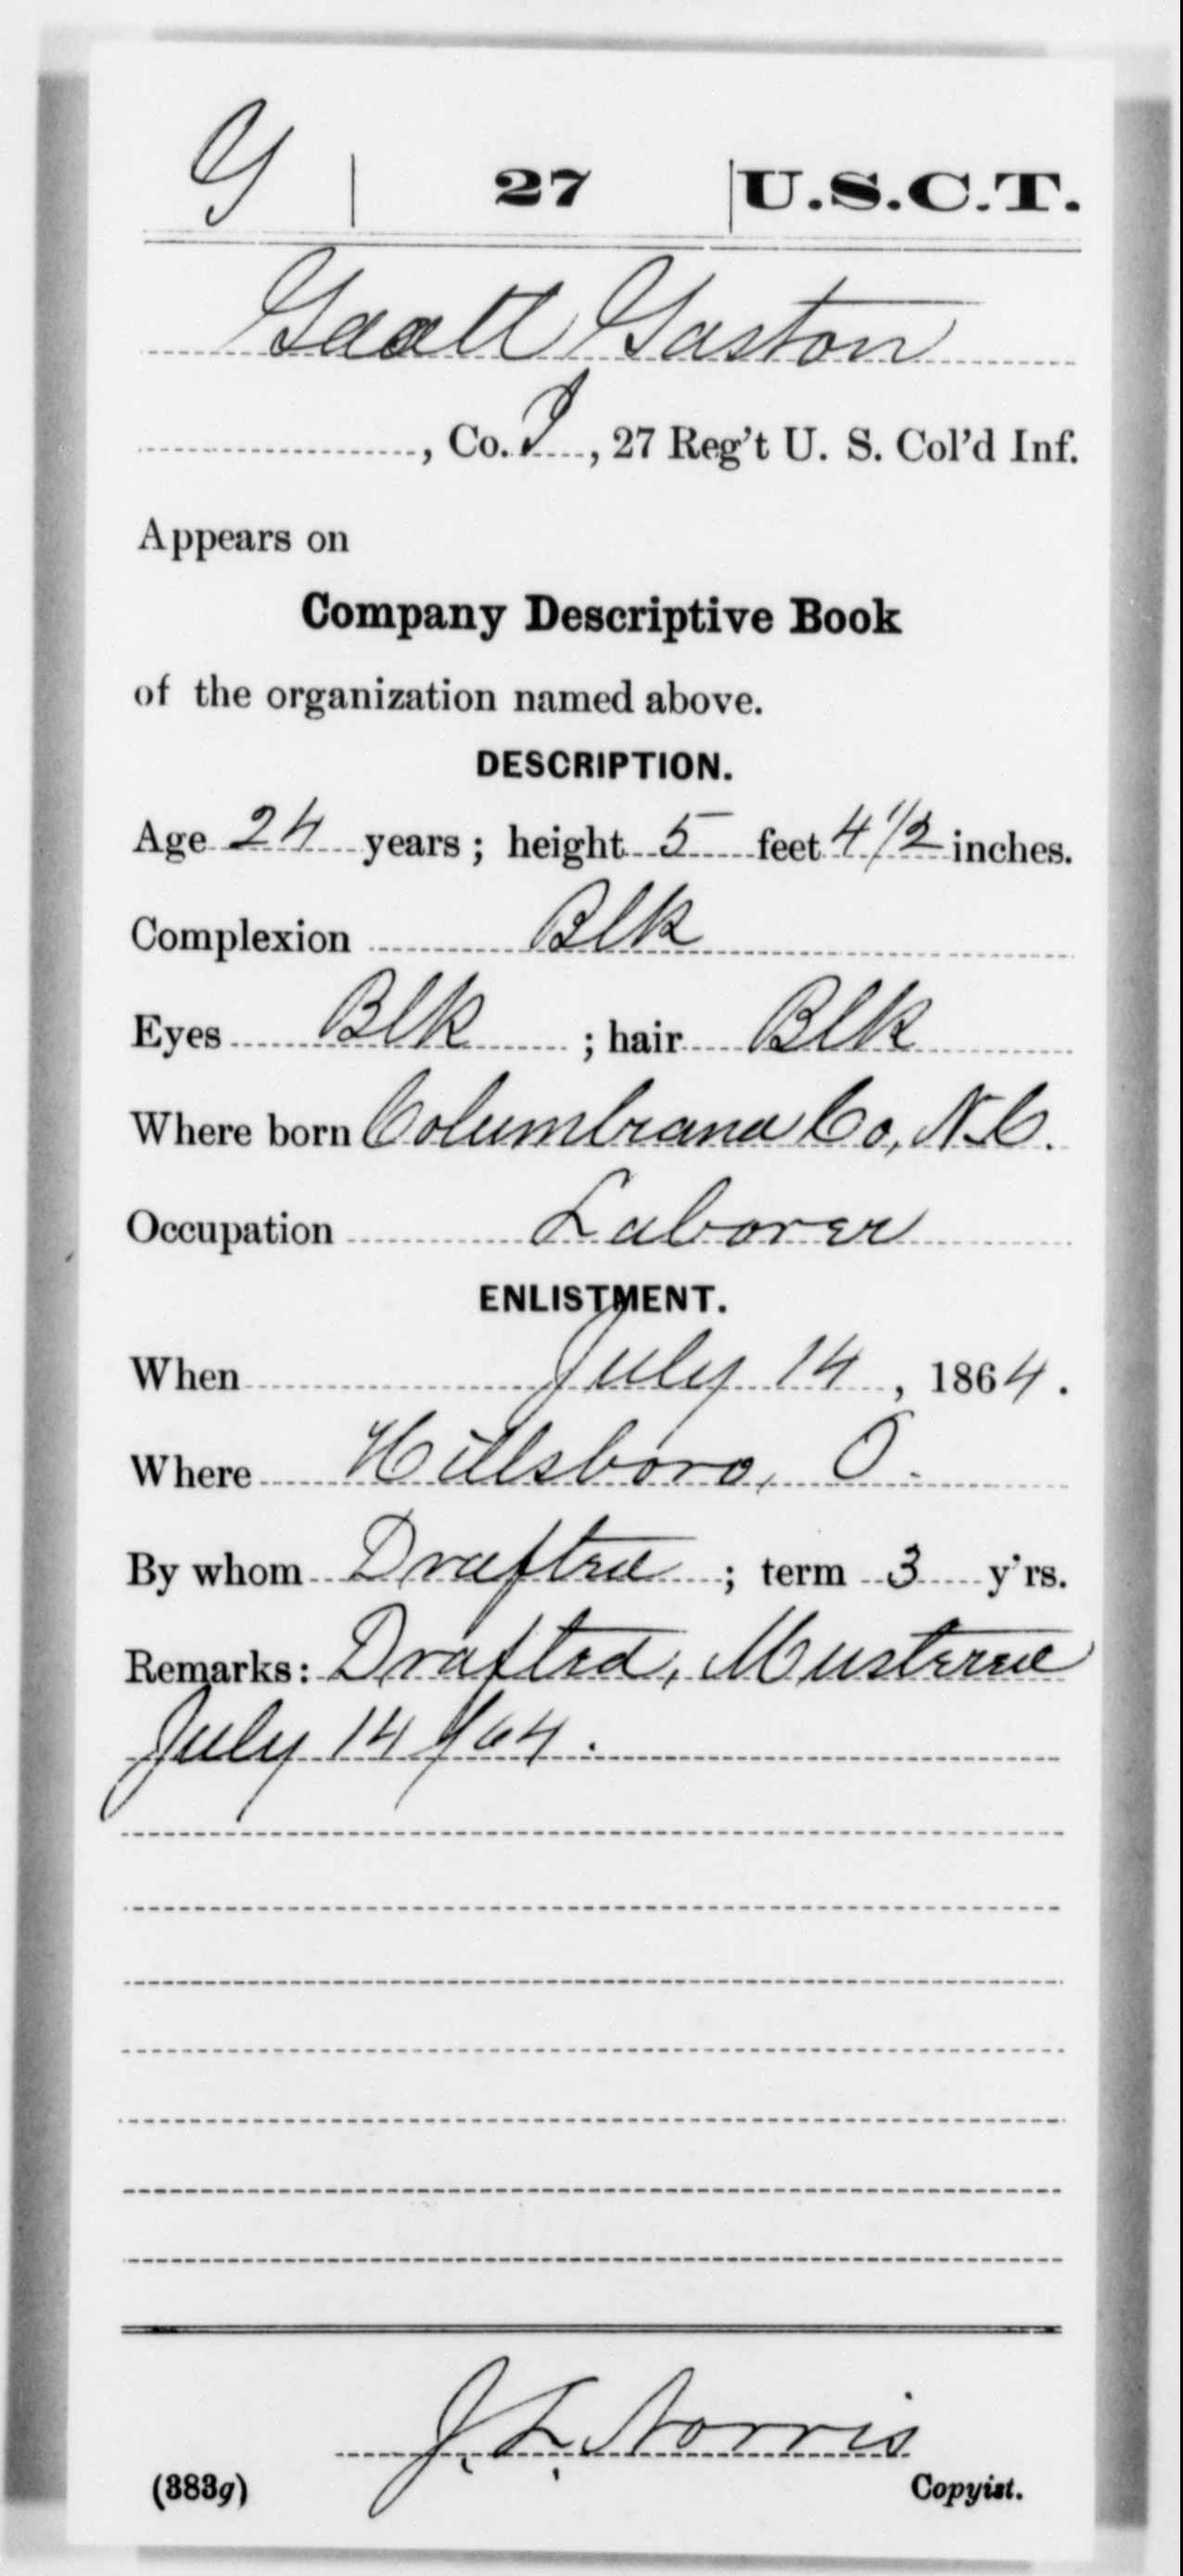 G | 27 | U.S.C.T.
Gaston
, Co. I, 27 Reg't U. S. Col'd Inf.
Appears on
Company Descriptive Book
of the organization named above.
DESCRIPTION.
Age 24 years; height 5 feet 4 1/2 inches.
Complexion Blk
Eyes Blk ; hair Blk
Where born Columbiana Co, N.C.
Occupation Laborer
ENLISTMENT.
When July 14, 1864.
Where Hillsboro, O.
By whom Drafted ; term 3 y'rs.
Remarks: Drafted, Mustered
July 14/64.
J. L. Norris
(383g) Copyist.